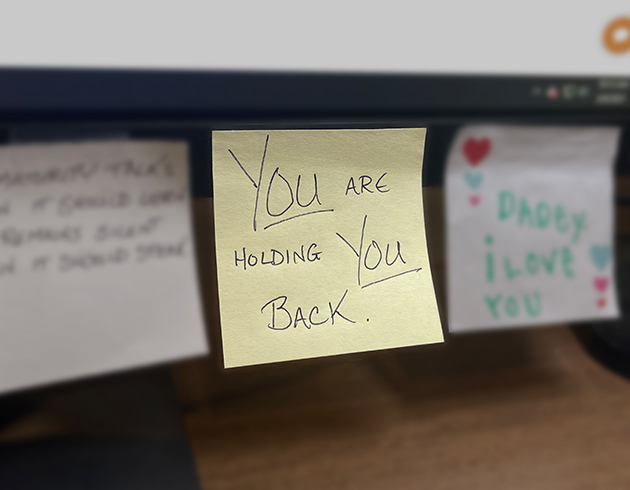 MATURITY TALKS
IT SHOULD
REMAINS SILENT
IT SHOULD SPEAK
YOU ARE
HOLDING YOU
BACK.
DADDY
i LOVE
YOU